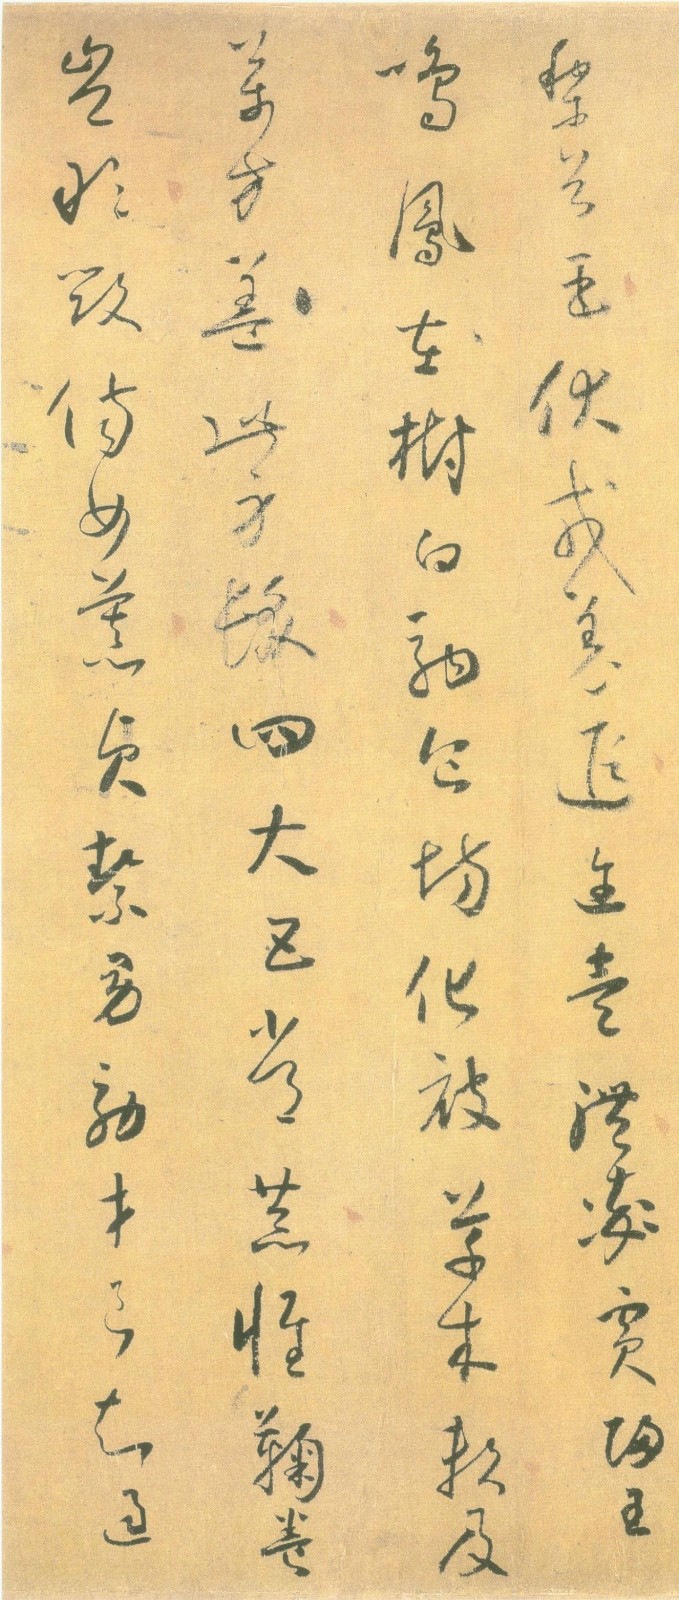 黎首臣伏戎羌遐迩壹體率賓歸王
鳴鳳在樹白駒食場化被草木賴及
萬方蓋此身髮四大五常恭惟鞠養
豈敢毀傷女慕貞絜男効才良知過